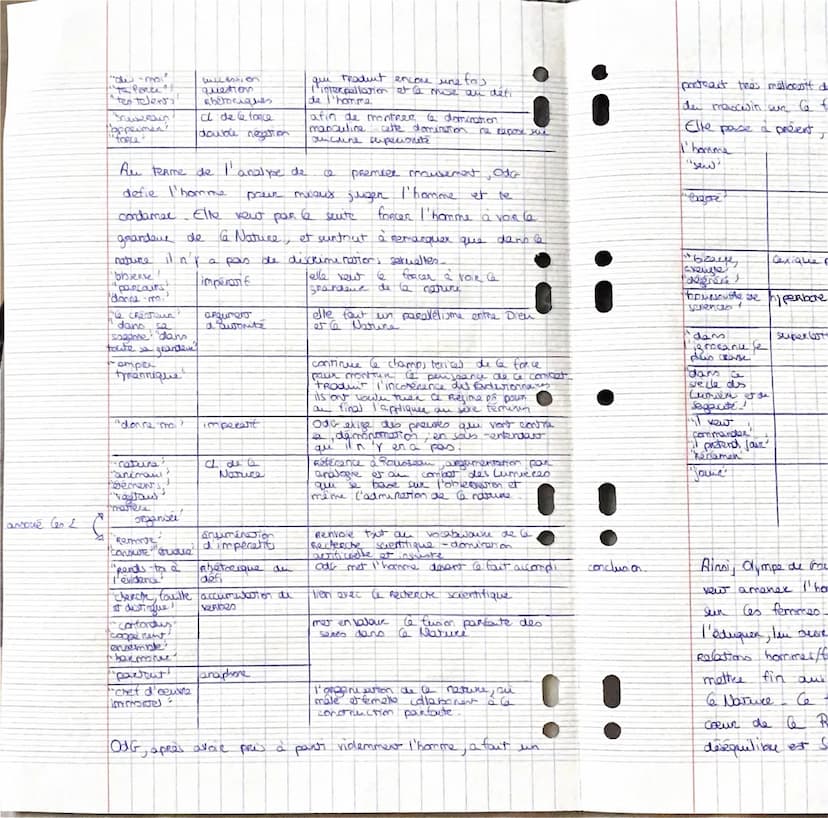 "dis-moi" succession que traduit encore une fois
"ta force" question l'interpellation et la mise au défi
"tes talents" rhétoriques de l'homme
"souverain" CL de la force afin de montrer la domination
"opprimer" double négation masculine cette domination ne repose sur
"force" aucune supériorité
Au terme de l'analyse de ce premier mouvement, OdG
défie l'homme pour mieux juger l'homme et le
condamner. Elle veut par la suite forcer l'homme à voir la
grandeur de la Nature, et surtout à remarquer que dans la
nature il n'y a pas de discriminations sexuelles.
"observe" impératif elle veut le forcer à voir la
"parcours" grandeur de la nature
"donne-moi"
"le créateur" argument elle fait un parallélisme entre Dieu
"dans sa d'autorité et la Nature
sagesse" "dans
toute sa grandeur"
"empire continue le champ lexical de la force
tyrannique" pour montrer la puissance de ce combat
traduit l'incohérence des révolutionnaires
ils ont voulu tuer le Régime pour
au final l'appliquer au sexe féminin
"donne-moi" impératif OdG exige des preuves qui vont contre
sa démonstration, en sous-entendant
qu'il n'y en a pas.
"nature" CL de la Référence à Rousseau, argumentation par
"animaux" Nature analogie et au combat des Lumières
"éléments" qui se base sur l'observation et
"végétaux" même l'admiration de la nature.
"matière
organisée"
associé les 2
"remonte" énumération renvoie tout au vocabulaire de la
"consulte" "étudie" d'impératifs recherche scientifique - domination
artificielle et injuste
"rends-toi à rhétorique du OdG met l'homme devant le fait accompli
l'évidence" défi
"cherche, fouille accumulation de lien avec la recherche scientifique
et distingue" verbes
"confondus" met en valeur la fusion parfaite des
"coopèrent" sexes dans la Nature
"ensemble"
"harmonieux"
"partout" anaphore
"chef d'oeuvre l'organisation de la nature, où
immortel" mâle et femelle collaborent à la
construction parfaite.
OdG, après avoir pris à parti violemment l'homme, a fait un
portrait très mélioratif d
du masculin sur le f
Elle passe à présent,
l'homme
"seul"
"bizarre, lexique
aveugle,
dégénéré"
"boursouflé de hyperbole
sciences"
"dans superlat
l'ignorance la
plus crasse"
"dans ce
siècle des
Lumières et de
sagacité"
"il veut
commander"
"il prétend jouir"
"réclamer"
"jouir"
conclusion.
Ainsi, Olympe de Gou
veut amener l'hom
sur les femmes.
l'éduquer, lui ouvr
relations hommes/f
mettre fin aux
la Nature. Ce
cœur de la R
déséquilibre est s